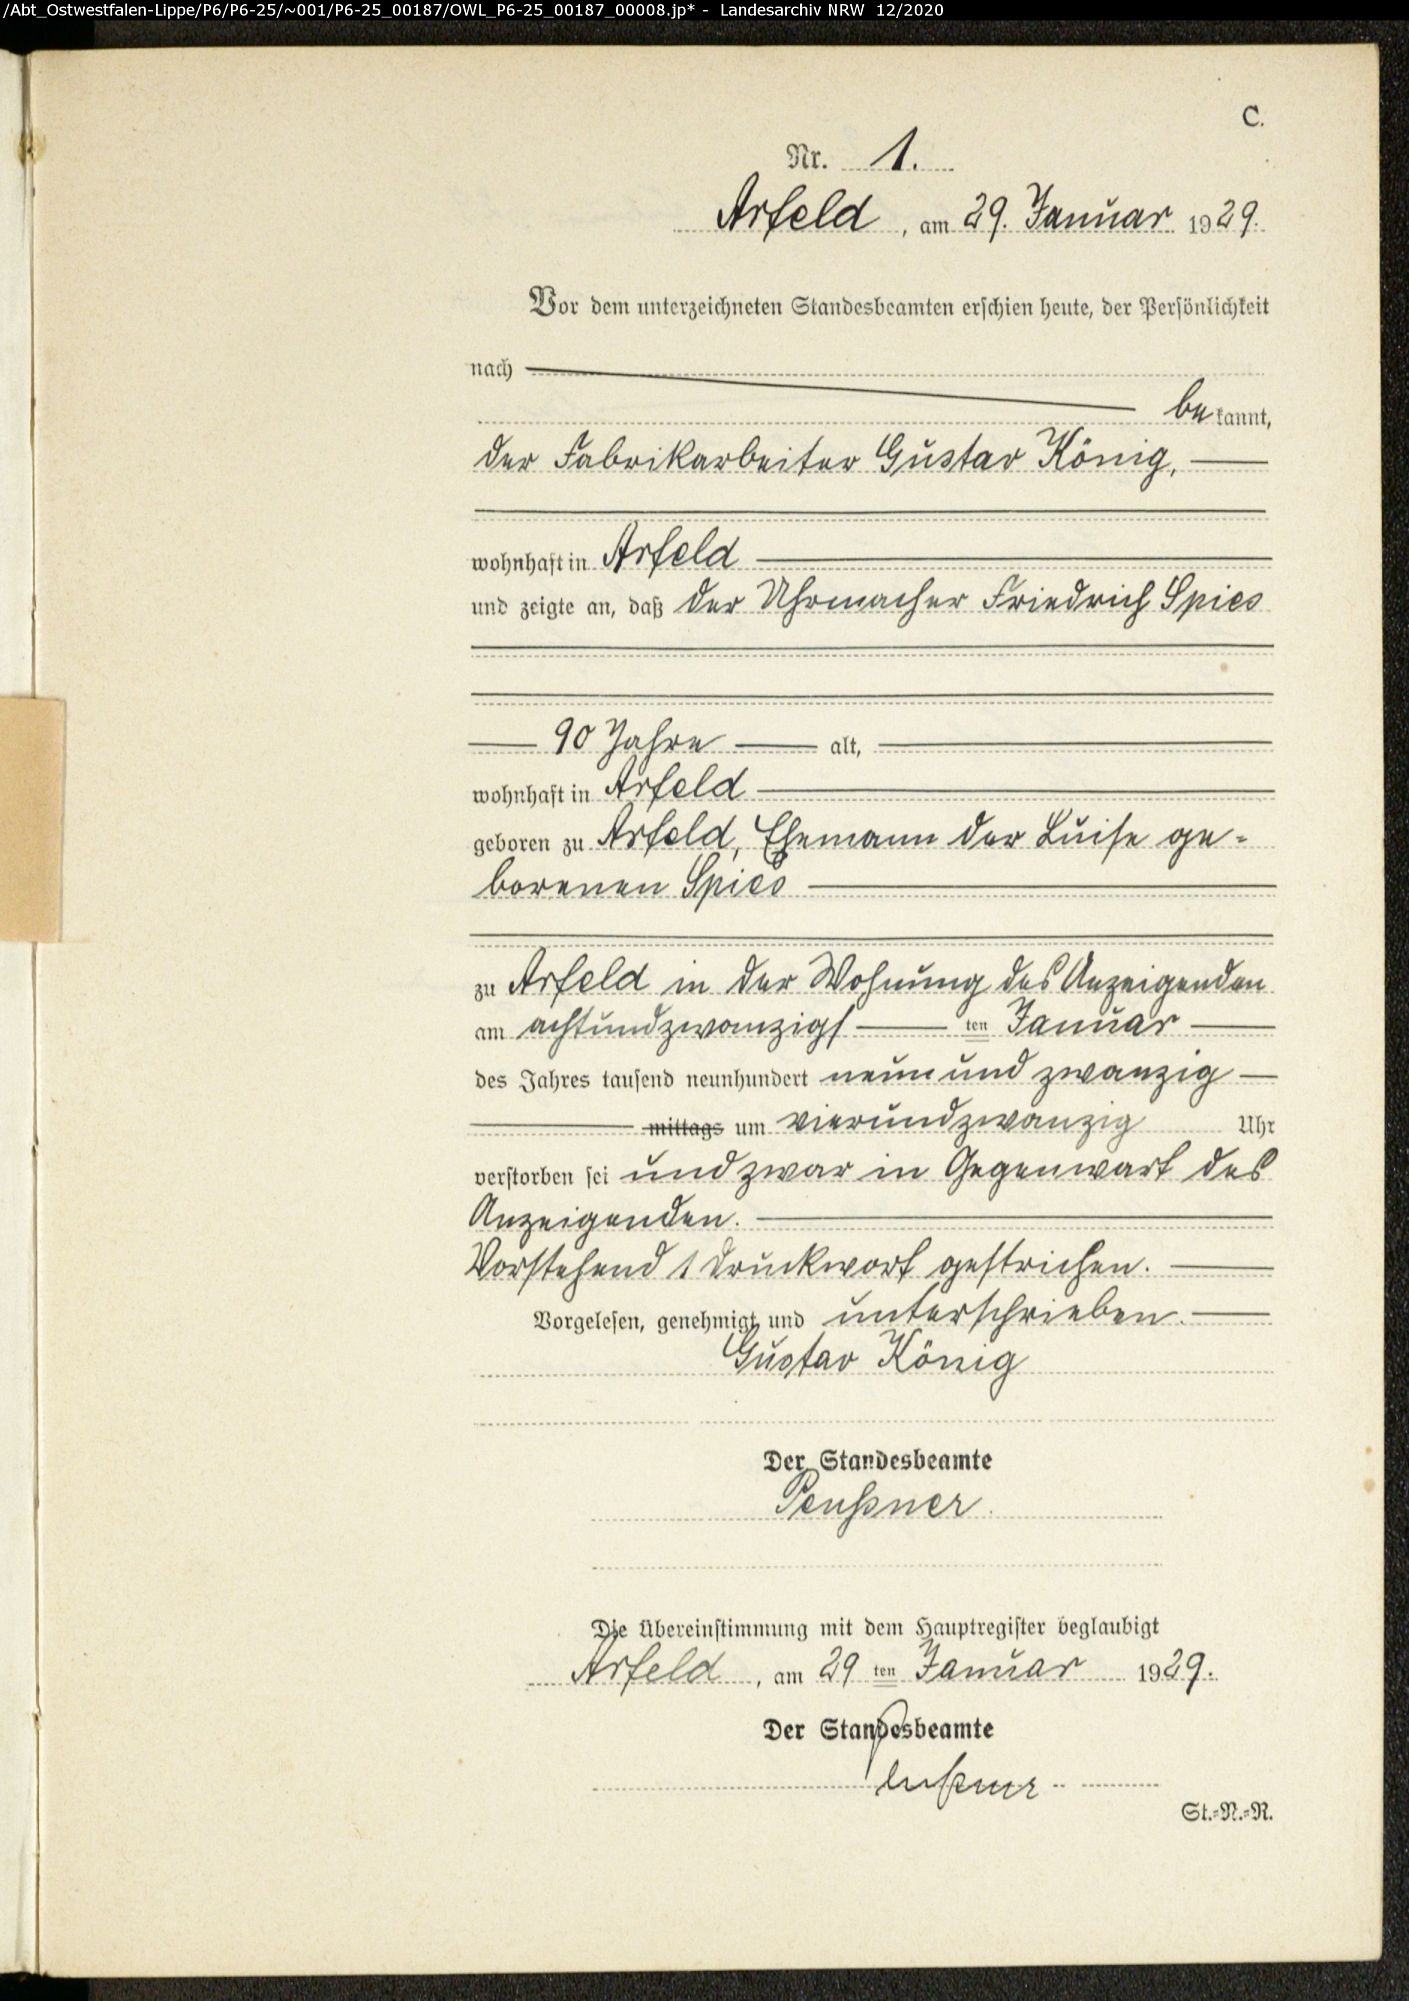 /Abt_Ostwestfalen-Lippe/P6/P6-25/~001/P6-25_00187/OWL_P6-25_00187_00008.jp* - Landesarchiv NRW 12/2020
C.
Nr. 1.
Arfeld, am 29. Januar 1929.
Vor dem unterzeichneten Standesbeamten erschien heute, der Persönlichkeit
nach
bekannt,
der Fabrikarbeiter Gustav König,
wohnhaft in Arfeld
und zeigte an, daß der Uhrmacher Friedrich Spies
90 Jahre alt,
wohnhaft in Arfeld
geboren zu Arfeld, Ehemann der Luise ge-
borenen Spies
zu Arfeld in der Wohnung des Anzeigenden
am achtundzwanzigsten Januar
des Jahres tausend neunhundert neunundzwanzig
mittags um vierundzwanzig Uhr
verstorben sei und zwar in Gegenwart des
Anzeigenden.
Vorstehend 1 Druckwort gestrichen.
Vorgelesen, genehmigt und unterschrieben.
Gustav König
Der Standesbeamte
Peußner.
Die Übereinstimmung mit dem Hauptregister beglaubigt
Arfeld, am 29ten Januar 1929.
Der Standesbeamte
Peußner
St.=N.=R.